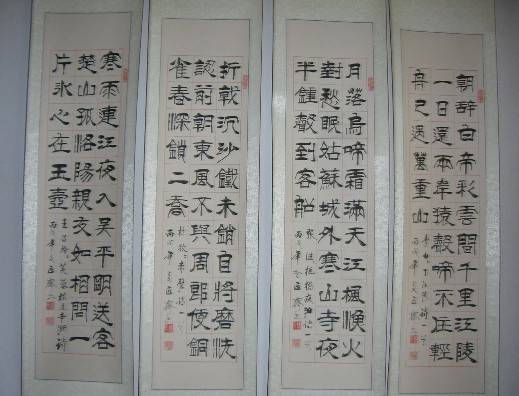 朝辞白帝彩雲間千里江陵
一日還兩岸猿聲啼不住輕
舟已過萬重山
月落烏啼霜滿天江楓漁火
對愁眠姑蘇城外寒山寺夜
半鍾聲到客船
張繼楓橋夜泊詩一首
折戟沉沙鐵未銷自將磨洗
認前朝東風不與周郎便銅
雀春深鎖二喬
杜牧赤壁詩一首
寒雨連江夜入吳平明送客
楚山孤洛陽親友如相問一
片冰心在玉壺
王昌齡芙蓉樓送辛漸詩